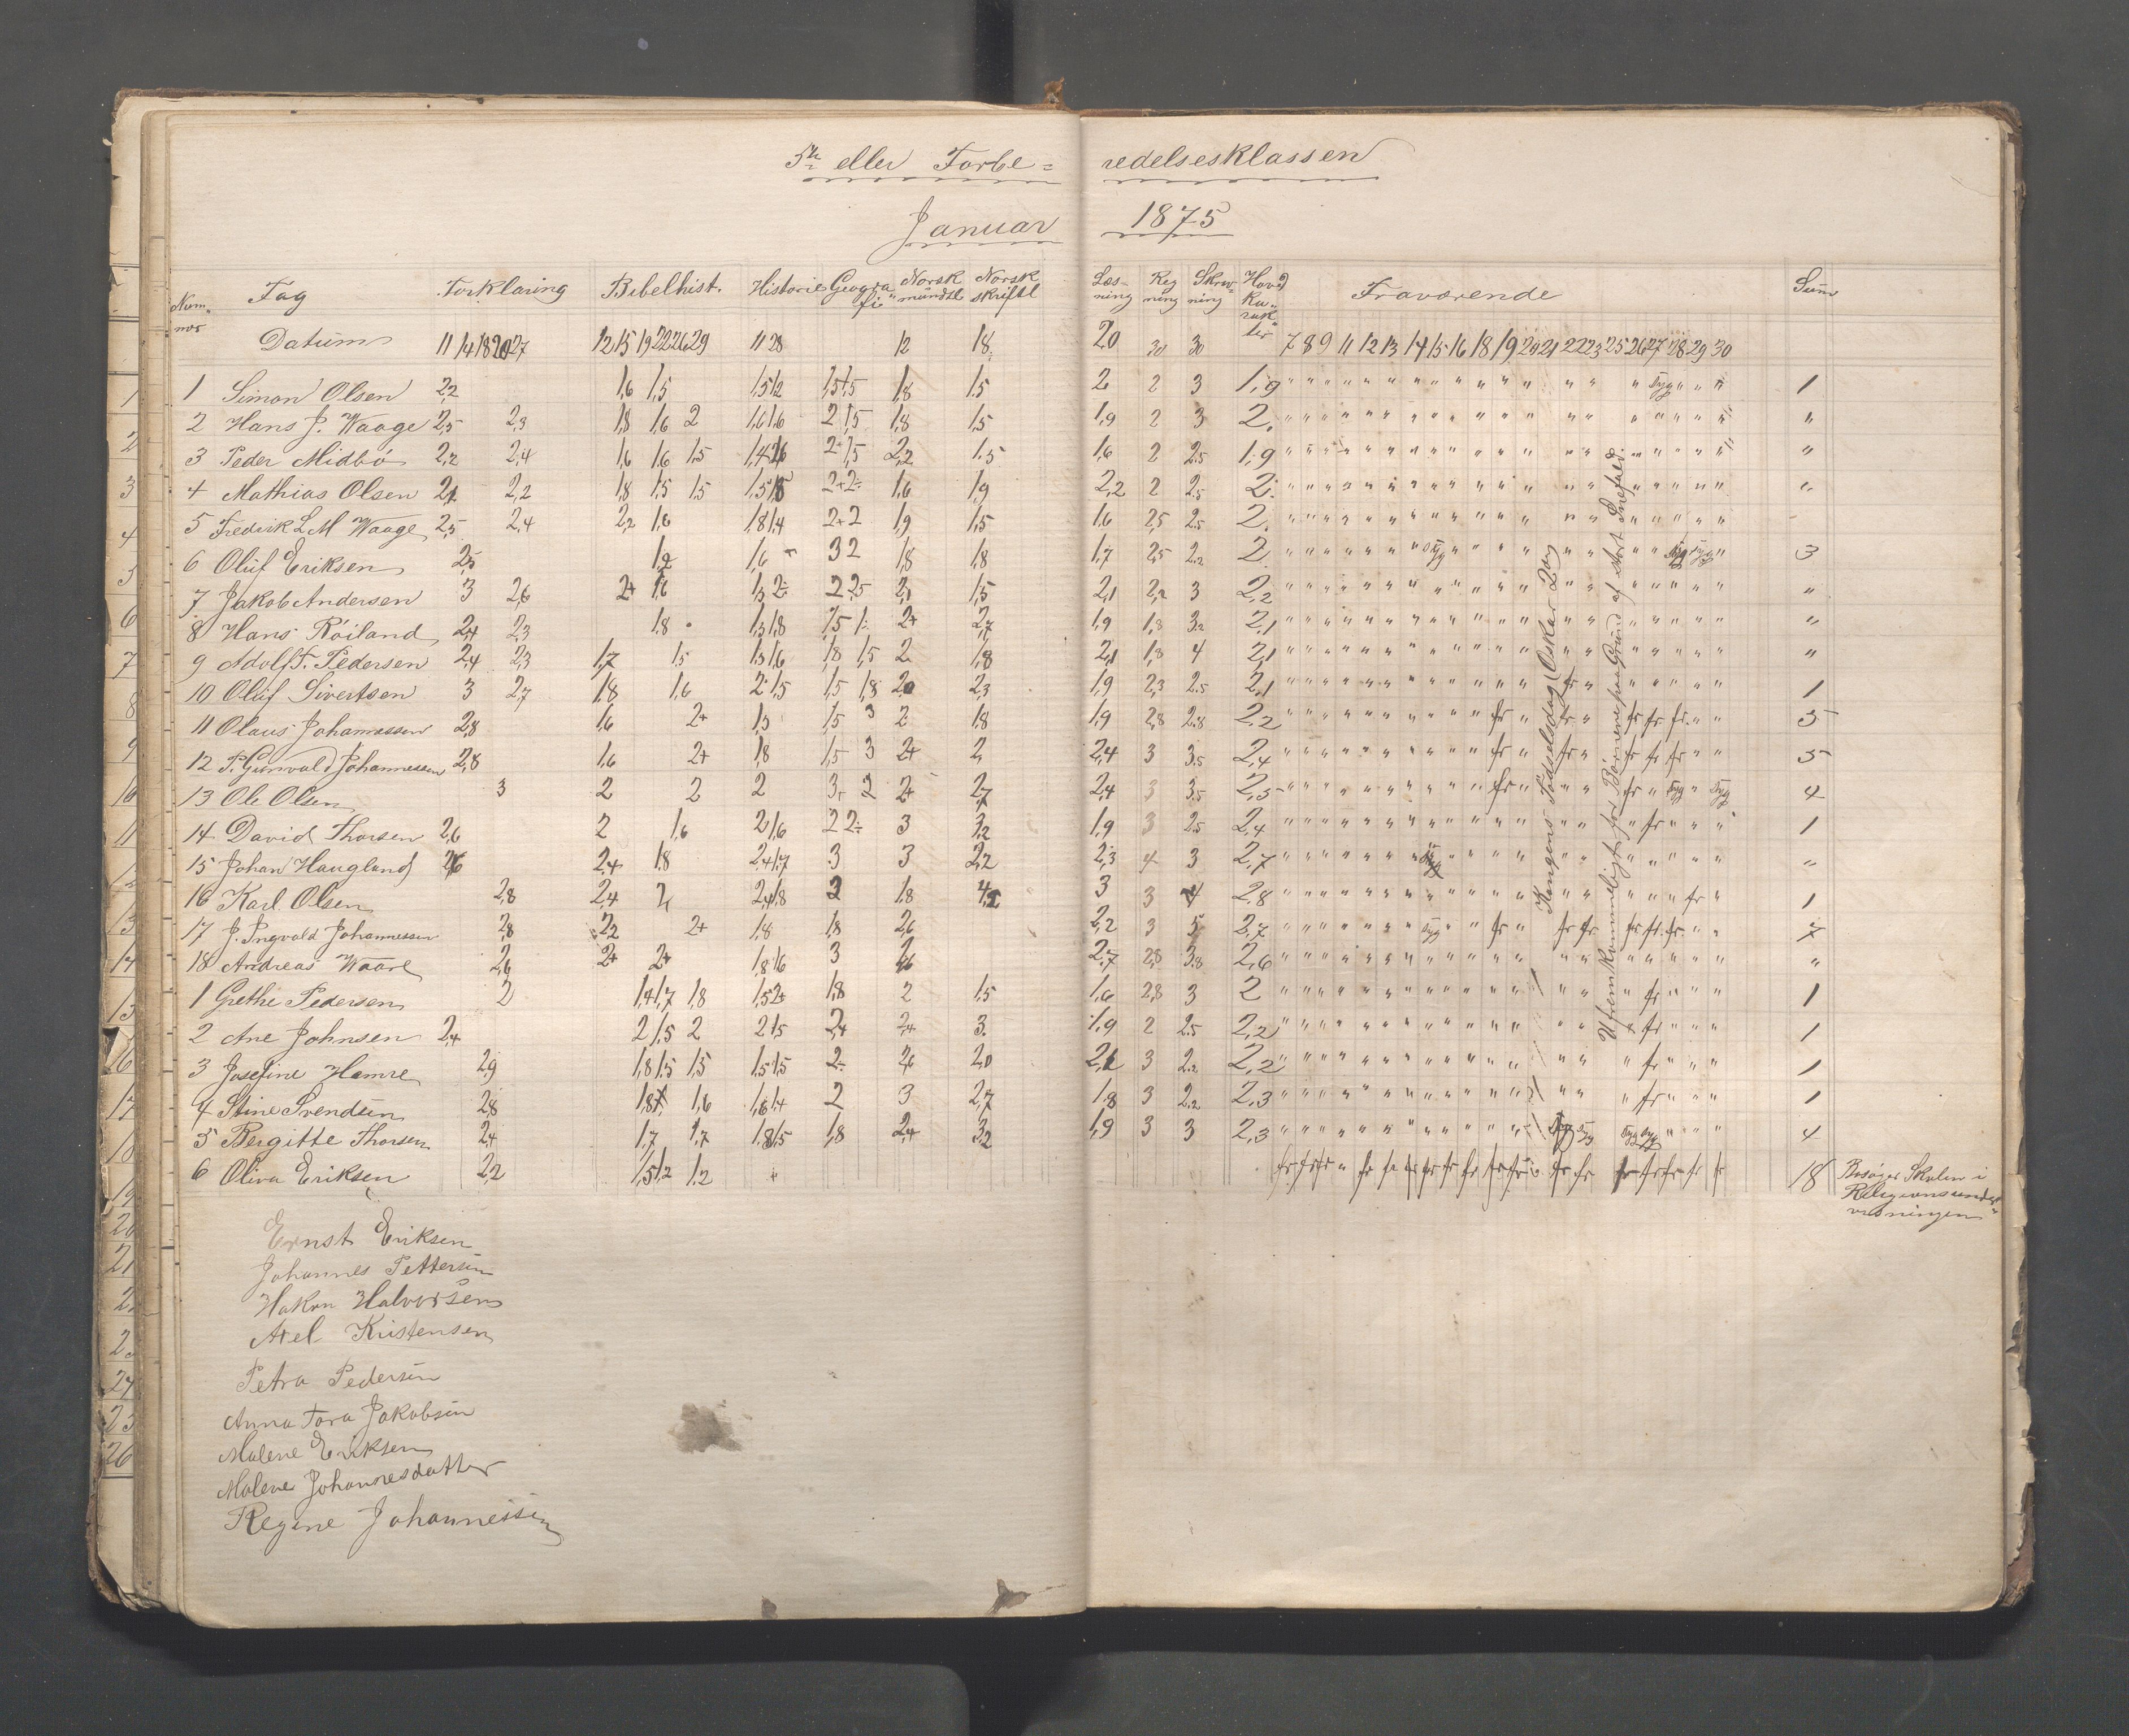 5te eller Forbe= redelsesklassen
Januar 1875
Num-mer Fag Forklaring Bibelhist. Historie Geografi Norsk mündtl Norsk skriftl Læs-ning Reg ning Skriv-ning Hoved Ka-rak-ter Fraværende Sum
Datum 11 14 18 20 27 12 15 19 22 26 29 11 28 12 18 20 30 30 7 8 9 11 12 13 14 15 16 18 19 20 21 22 23 25 26 27 28 29 30
1 Simon Olsen 2,2 1,6 1,5 1,5 1,2 1,5 1,5 1,8 1,5 2 2 3 1,9 Syg 1
2 Hans J. Waage 2,5 2,3 1,8 1,6 2 1,6 1,6 2 1,5 1,8 1,5 1,9 2 3 2, "
3 Peder Midbö 2,2 2,4 1,6 1,6 1,5 2,2 1.5 1,6 2 2.5 1,9 "
4 Mathias Olsen 2,1 2,2 1,8 1,5 1,5 1,6 1,9 2,2 2 2.5 2. "
5 Fredrik L M Waage 2,5 2,4 2,2 1,6 1,8 1,4 2+ 2 1,9 1,5 1,6 2,5 2.5 2.
6 Oluf Eriksen 2,5 1,2 1,6 3 2 1,8 1,8 1,7 2,5 2.2 2 Syg Syg Syg 3
7 Jakob Andersen 3 2,6 2+ 1,6 2 2,5 2,1 1,5 2,1 2,2 3 2,2 "
8 Hans Röiland 2,4 2,3 1,8 1,3 1,8 2+ 2,7 1,9 1,8 3.2 2,1 "
9 Adolf F. Pedersen 2,4 2,3 1,7 1,5 1,3 1,6 1,8 1,5 2 1,8 2,1 1,8 4 2,1 "
10 Oluf Sivertsen 3 2,7 1,8 1,6 2 1,5 1,5 1,8 2,0 2,3 1,9 2,3 2.5 2,1 fr 1
11 Olaus Johannessen 2,8 1,6 2+ 1,3 1,5 3 2 1,8 1,9 2,8 2.8 2,2 fr fr fr fr fr 5
12 P. Gunvald Johannessen 2,8 1,6 2+ 1,8 1,5 3 2+ 2 2,4 3 3.5 2,4 fr fr fr fr fr 5
13 Ole Olsen 3 2 2 2 3 2 2+ 2,7 2,4 3 3.5 2,5 fr fr Syg Syg 4
14 David Thorsen 2,6 2 1,6 2 1,6 2 2÷ 3 3,2 1,9 3 2.5 2,4 fr 1
15 Johan Haugland 2,6 2,4 1,8 2,4 1,7 3 3 2,2 2,3 4 3 2,7 "
16 Karl Olsen 2,8 2,4 2,4 1,8 2 1,8 3 3 4 2,8 fr 1
17 J. Ingvald Johannessen 2,8 2,2 2+ 1,8 1,8 2,6 2,2 3 5 2,7 Syg fr fr fr fr fr fr 7
18 Andreas Waare 2,6 2+ 2+ 1,8 1,6 3 2,7 2,8 3.8 2,6 "
1 Grethe Pedersen 2 1,4 1,7 1,8 1,5 2+ 1,8 2 1,5 1,6 2,8 3 2 fr 1
2 Ane Johnsen 2,4 2 1,5 2 2 1,5 2,4 2,4 3. 1,9 2 2.5 2,2 fr 1
3 Josefine Hamre 2,9 1,8 1,5 1,5 1,5 1,5 2÷ 2,6 2,0 3 2.2 2,2 fr 1
4 Stine Svendsen 2,8 1,6 1,6 1,4 2 3 2,7 1,8 3 2.2 2,3 fr 1
5 Bergitte Thorsen 2,4 1,7 1,7 1,8 1,5 1,8 2,4 3,2 1,9 3 3 2,3 Syg Syg Syg Syg 4
6 Oliva Eriksen 2,2 1,5 1,2 1,2 " fr fr fr fr fr fr fr fr fr fr fr fr fr fr fr fr fr fr 18 Besöger Skolen i Religionsunder-visningen
Kongens Födselsdag (Oskar 2den)
Ufremkommeligt for Börnene paa Grund af stort Snefald.
Ernst Eriksen
Johannes Pettersen
Hakon Halvorsen
Axel Kristensen
Petra Pedersen
Anna Tora Jakobsen
Malene Eriksen
Malene Johannesdatter
Regine Johannessen